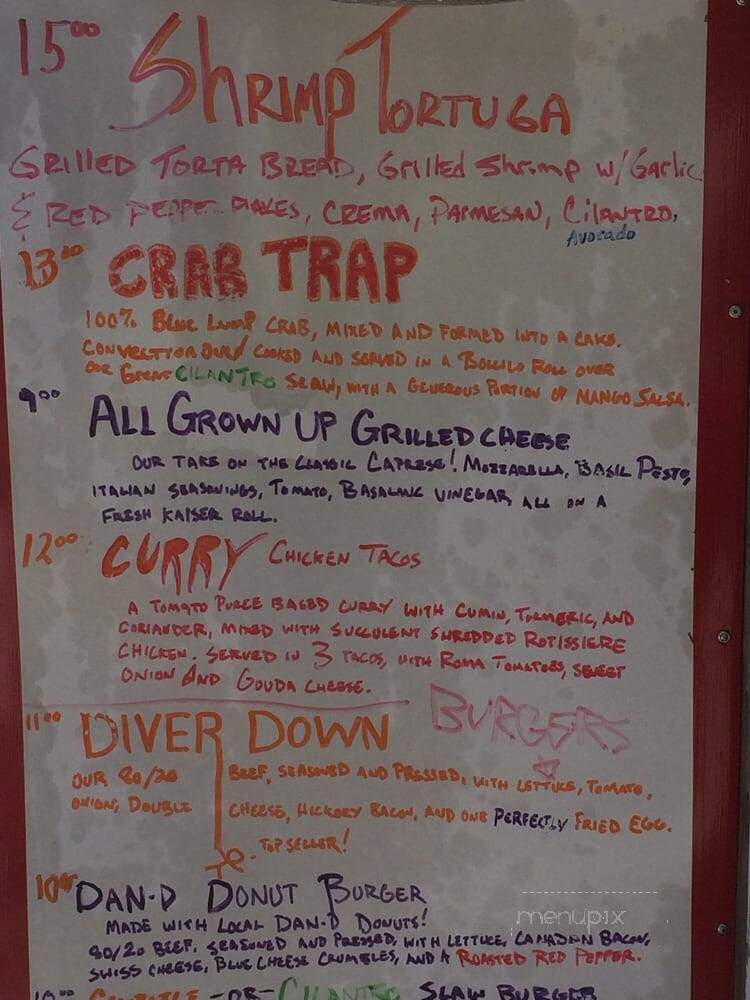 15.00 Shrimp Tortuga
Grilled Torta Bread, Grilled Shrimp w/ Garlic
& Red Pepper Flakes, Crema, Parmesan, Cilantro,
Avocado
13.00 CRAB TRAP
100% Blue Lump Crab, mixed and formed into a cake.
Convection oven cooked and served in a Bolillo Roll over
our Great CILANTRO Slaw, with a generous portion of Mango Salsa.
9.00 All Grown Up Grilled Cheese
Our take on the classic Caprese! Mozzarella, Basil Pesto,
Italian seasonings, Tomato, Basalmic vinegar all on a
fresh Kaiser Roll.
12.00 CURRY Chicken Tacos
A Tomato Puree based curry with Cumin, Turmeric, and
Coriander, mixed with succulent shredded Rotissiere
Chicken. Served in 3 tacos, with Roma Tomatoes, sweet
onion and Gouda Cheese.
BURGERS
11.00 DIVER DOWN
Our 80/20 Beef, seasoned and pressed, with lettuce, tomato,
onion, Double cheese, hickory bacon, and one PERFECTLY fried egg.
- Top Seller!
10.00 DAN-D DONUT BURGER
Made with local Dan-D Donuts!
80/20 Beef, seasoned and pressed, with lettuce, Canadian Bacon,
Swiss cheese, Blue cheese crumbles, and a Roasted Red Pepper.
-OR- CILANTRO SLAW BURGER
menupix